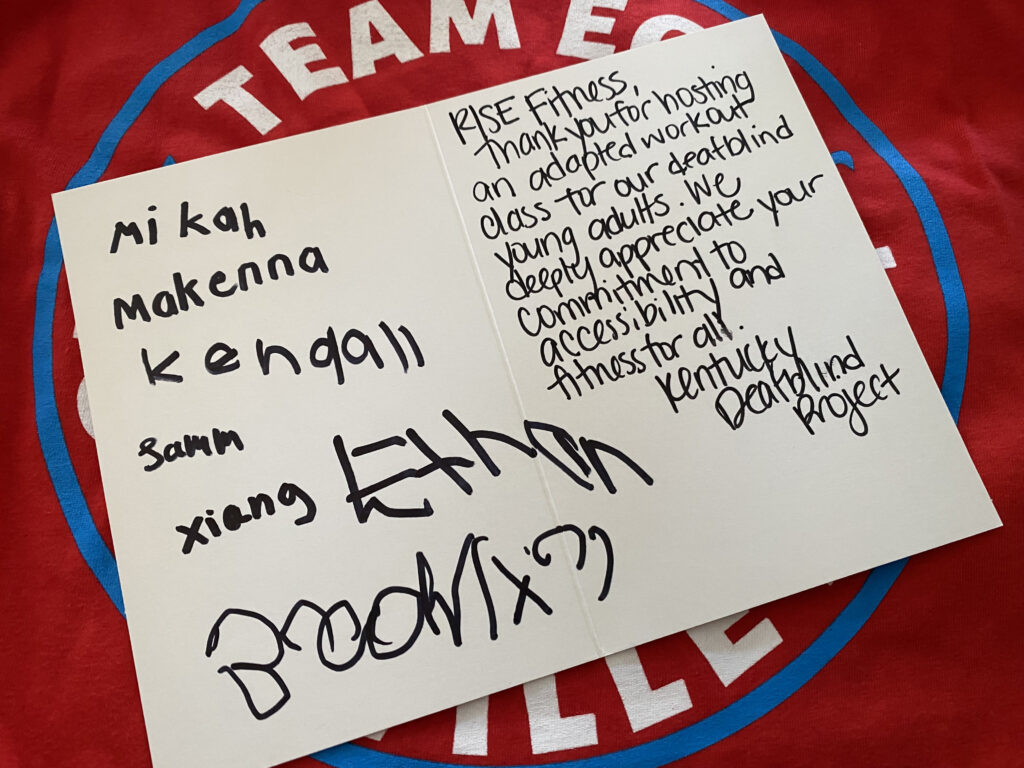 TEAM
Mikah
Makenna
Kendall
Samm
Xiang
Ethan
RISE Fitness,
Thank you for hosting
an adapted workout
class for our deafblind
young adults. We
deeply appreciate your
commitment to
accessibility and
fitness for all.
Kentucky
Deafblind
Project